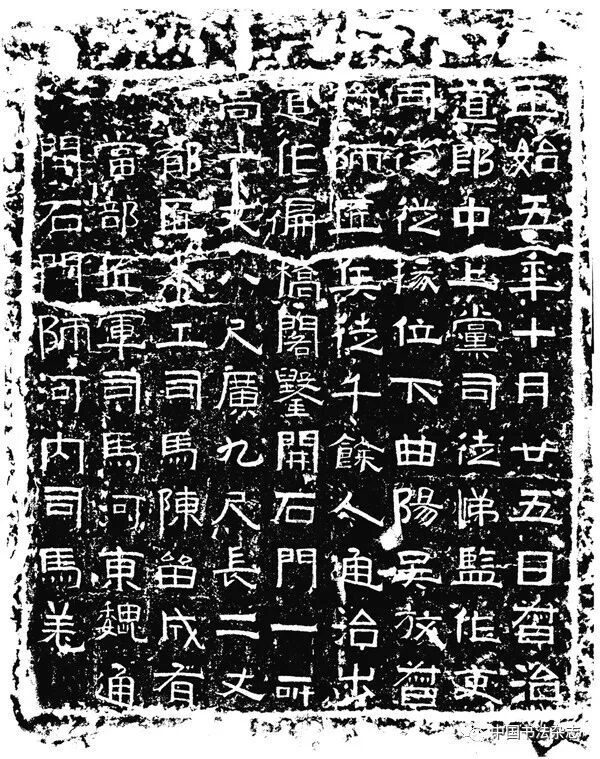 正始五年十月廿五日督治
道郎中上黨司徒悌監作吏
司徒從掾位下曲陽吳放督
將師匠兵徒千餘人通治步
道作偏橋閣鑿開石門一所
高一丈八尺廣九尺長二丈
都匠木工司馬陳留成有
當部匠軍司馬河東魏通
開石門師河內司馬羌
中国书法杂志